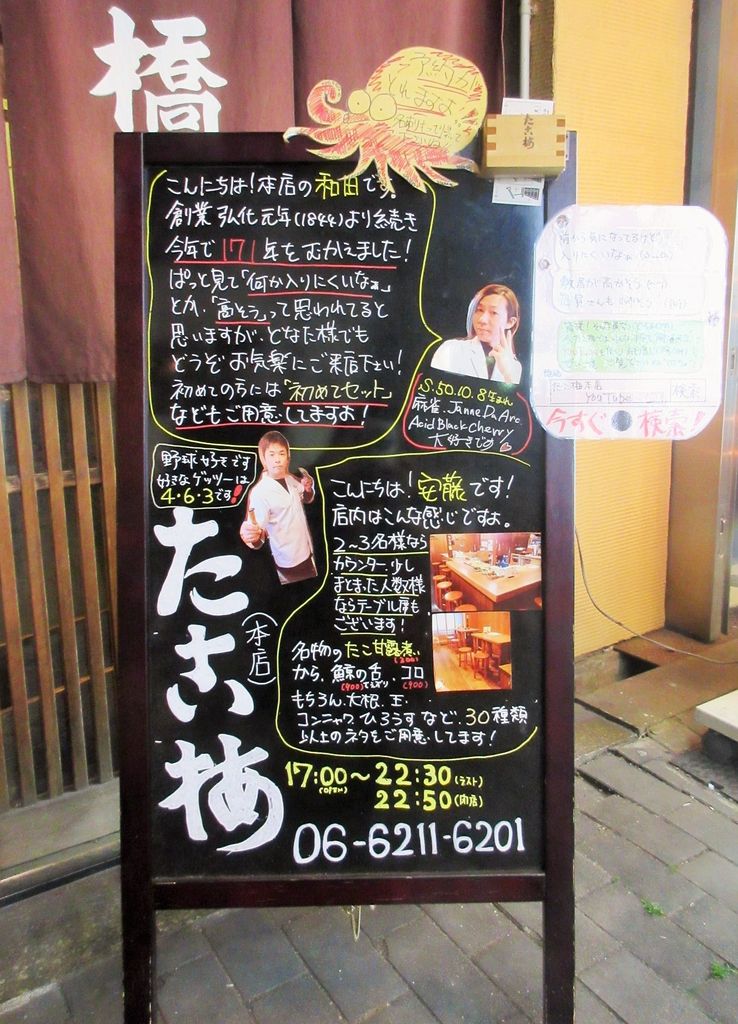 橋
予約もか
とれますよ
たこ梅
こんにちは!本店の和田です。
創業 弘化元年(1844)より続き
今年で171年をむかえました!
ぱっと見て「何か入りにくいなぁ」
とか、「高そう」って思われてると
思いますが、どなた様でも
どうぞお気楽にご来店下さい!
初めての方には「初めてセット」
などもご用意してますよ!
S.50.10.8生まれ
麻雀、Janne Da Arc
Acid Black Cherry
大好きです
野球好きです
好きなゲッツーは
4・6・3です!
こんにちは!安藤です!
店内はこんな感じですよ。
2〜3名様なら
カウンター、少し
まとまった人数様
ならテーブル席も
ございます!
名物のたこ甘露煮
(300)
から、鯨の舌、コロ
(900)さえずり (900)
もちろん、大根、玉、
コンニャク、ひろうすなど、30種類
以上のネタをご用意してます!
たこ梅
(本店)
17:00〜22:30(ラスト)
(OPEN) 22:50(閉店)
06-6211-6201
たこ梅本店
YouTube
検索
今すぐ検索!!